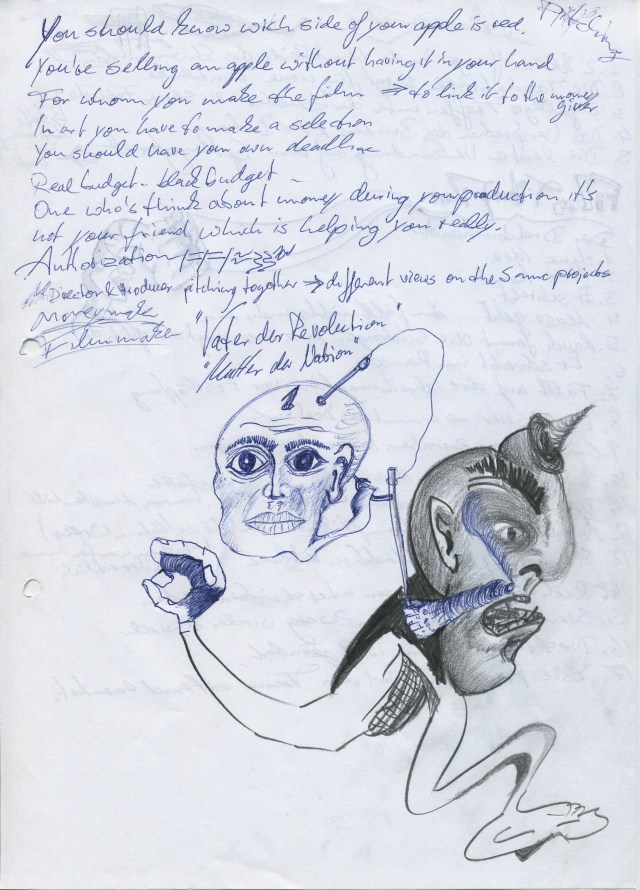 Pitching
You should know wich side of your apple is red.
You've selling an apple without having it in your hand
For whom you make the film => to link it to the money giver
In art you have to make a selection
You should have your own deadline
Real budget - black budget -
One who's think about money during your production it's
not your friend which is helping you really.
Authorization
Director & Producer pitching together => different views on the same projects
Moneymake
Filmmake
"Vater der Revolution"
"Mutter der Nation"